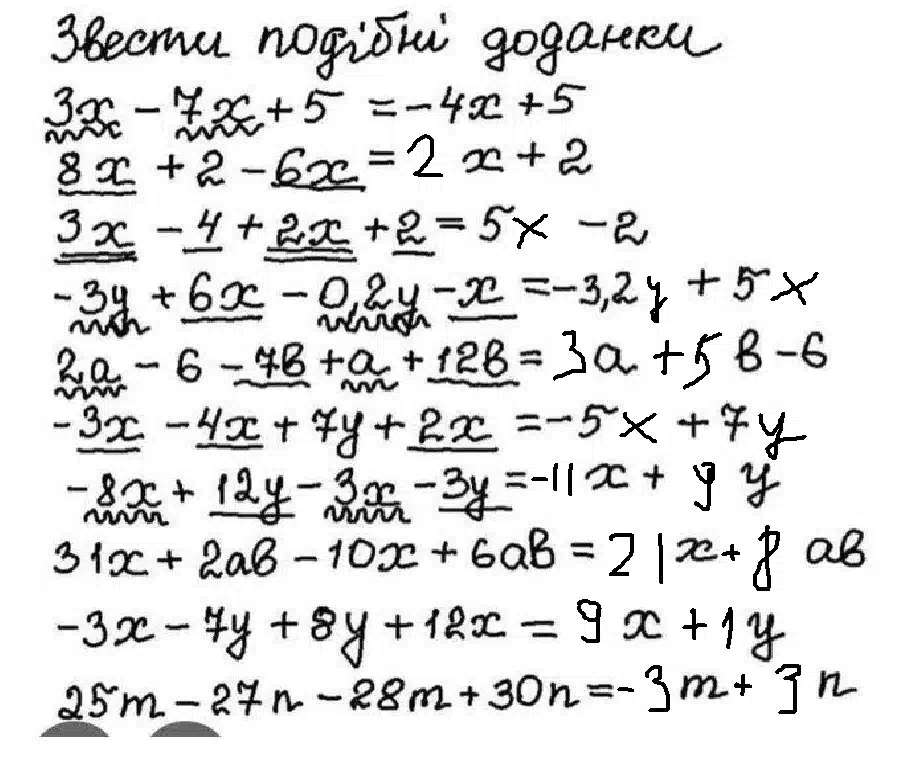 Звести подібні доданки
3x - 7x + 5 = -4x + 5
8x + 2 - 6x = 2x + 2
3x - 4 + 2x + 2 = 5x - 2
-3y + 6x - 0,2y - x = -3,2y + 5x
2a - 6 - 7в + a + 12в = 3a + 5в - 6
-3x - 4x + 7y + 2x = -5x + 7y
-8x + 12y - 3x - 3y = -11x + 9y
31x + 2aв - 10x + 6aв = 21x + 8aв
-3x - 7y + 8y + 12x = 9x + 1y
25m - 27n - 28m + 30n = -3m + 3n